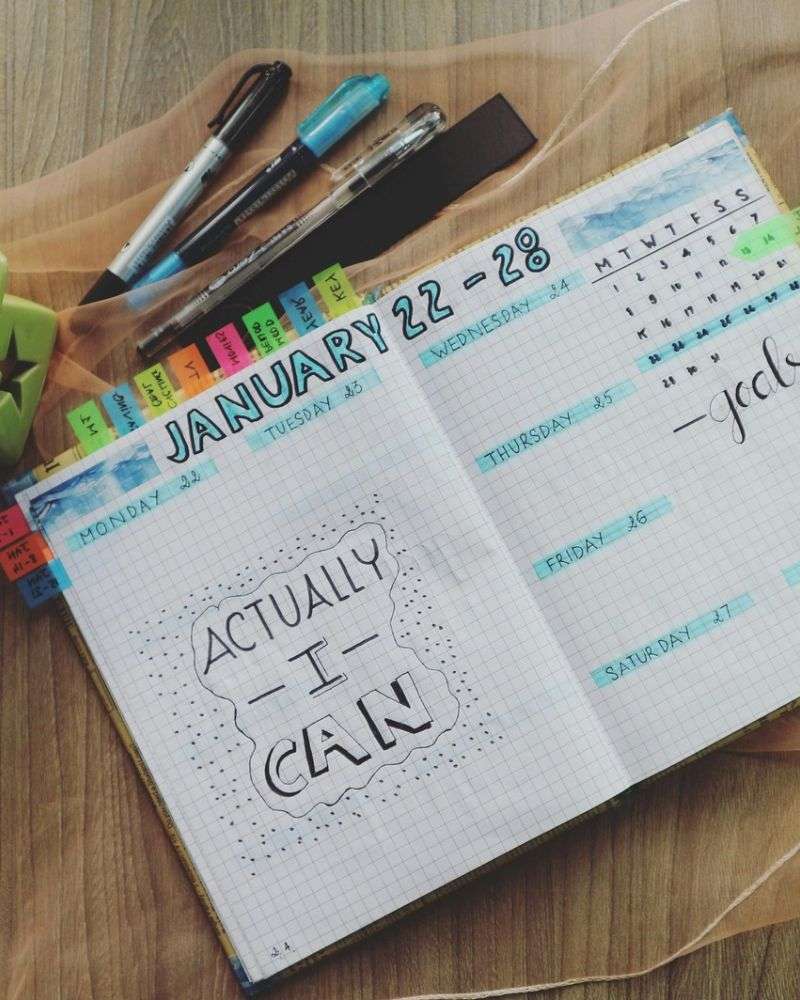 KEY
YEAR
JANUARY 22-28
MONDAY 22
TUESDAY 23
ACTUALLY
- I -
CAN
WEDNESDAY 24
THURSDAY 25
FRIDAY 26
SATURDAY 27
M T W T F S S
1 2 3 4 5 6 7
8 9 10 11 12 13 14
15 16 17 18 19 20 21
22 23 24 25 26 27 28
29 30 31
- goals
8-14
JAN